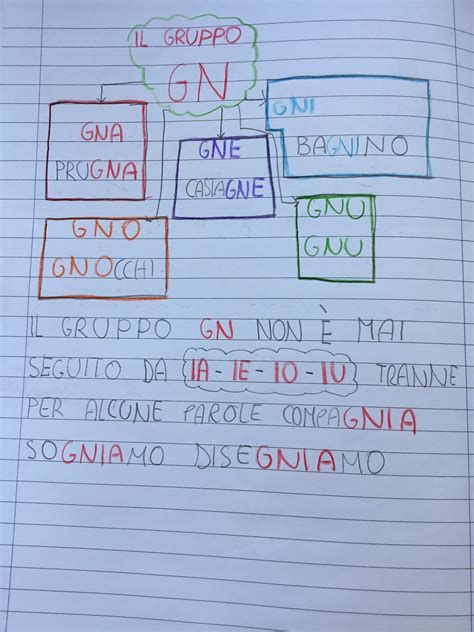 IL GRUPPO
GN
GNA
PRUGNA
GNE
CASTAGNE
GNI
BAGNINO
GNO
GNOCCHI
GNU
GNU
IL GRUPPO GN NON È MAI
SEGUITO DA IA-IE-IO-IU TRANNE
PER ALCUNE PAROLE COMPAGNIA
SOGNIAMO DISEGNIAMO